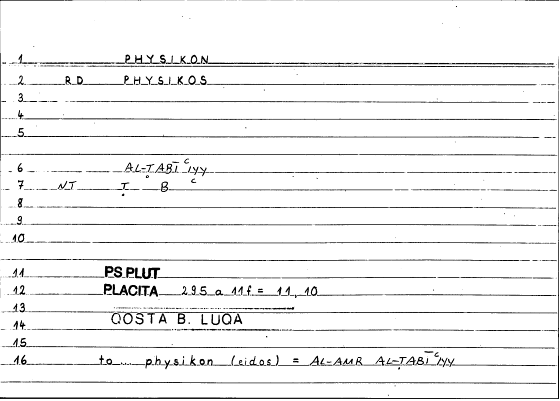 1 PHYSIKON
2 RD PHYSIKOS
3
4
5
6 AL-ṬABĪʿIYY
7 NT Ṭ B ʿ
8
9
10
11 PS.PLUT
12 PLACITA 295 a 11f = 11, 10
13
14 QOSTA B. LUQA
15
16 to... physikon (eidos) = AL-AMR AL-ṬABĪʿIYY